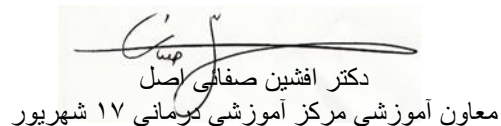 دکتر افشین صفائی اصل
معاون آموزشی مرکز آموزشی درمانی ۱۷ شهریور